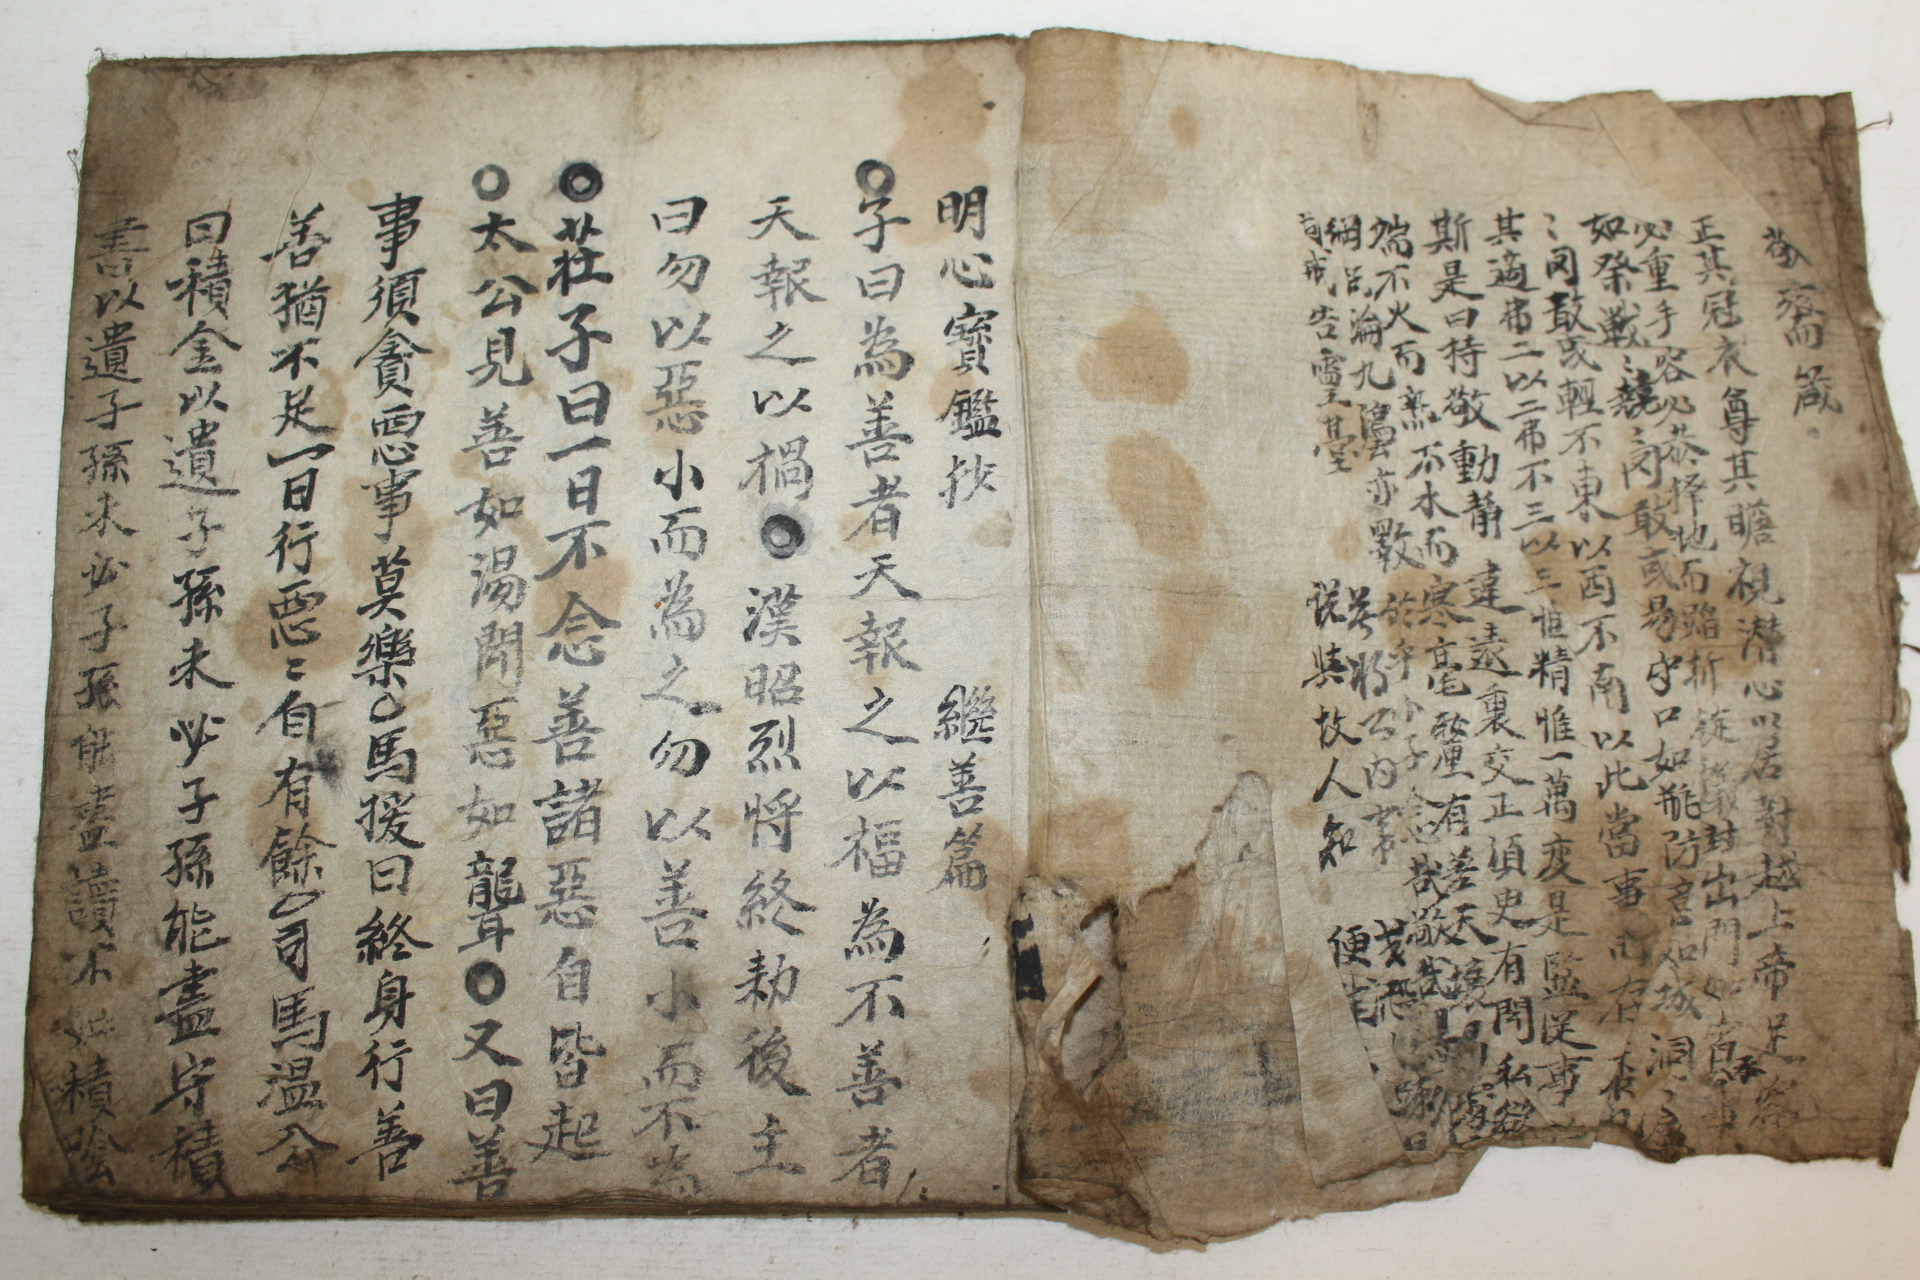 敬齋箴
正其冠衣尊其瞻視潜心以居對越上帝足容
必重手容必恭擇地而蹈折旋蟻封出門如賓承事
如祭戰〻兢〻罔敢或易守口如瓶防意如城洞〻屬
〻罔敢或輕不東以西不南以此當事而存
其適弗二以二弗不三以三惟精惟一萬变是監從事
斯是曰持敬動靜違遠裏交正須臾有間私欲
端不火而熱不水而寒毫釐有差天壤
綱 淪九 亦斁於乎小子念哉敬哉
戒告靈基
說與故人知
便
明心寶鑑抄 繼善篇
子曰為善者天報之以福為不善者
天報之以禍 漢昭烈将終勑後主
曰勿以惡小而為之勿以善小而不為
莊子曰一日不念善諸惡自皆起
太公見善如渴聞惡如聾 又曰善
事須貪悪事莫樂 馬援曰終身行善
善猶不足一日行悪〻自有餘 司馬溫公
曰積金以遺子孫未必子孫能盡守積
書以遺子孫未必子孫能盡讀不如積陰